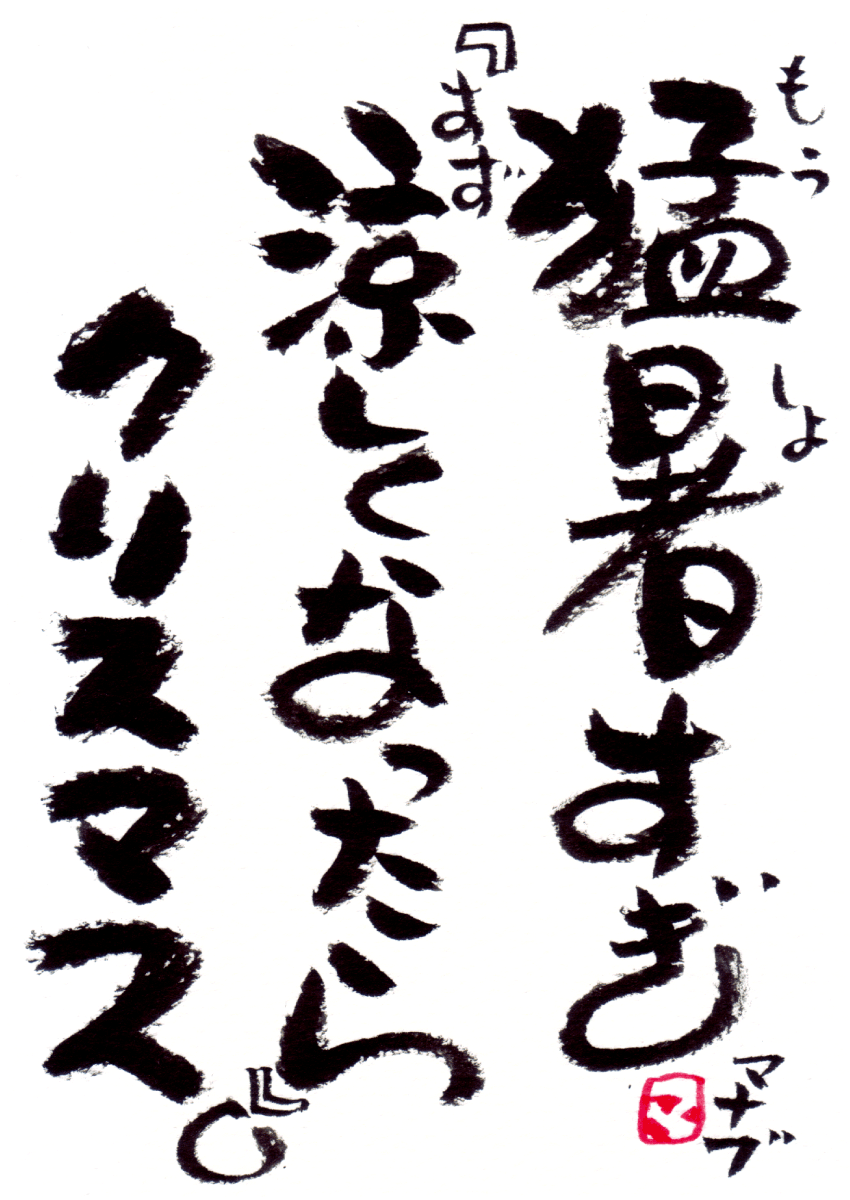 猛暑すぎ
もうしょ
『涼しくなったら』
すず
クリスマス。
マナブ
マ